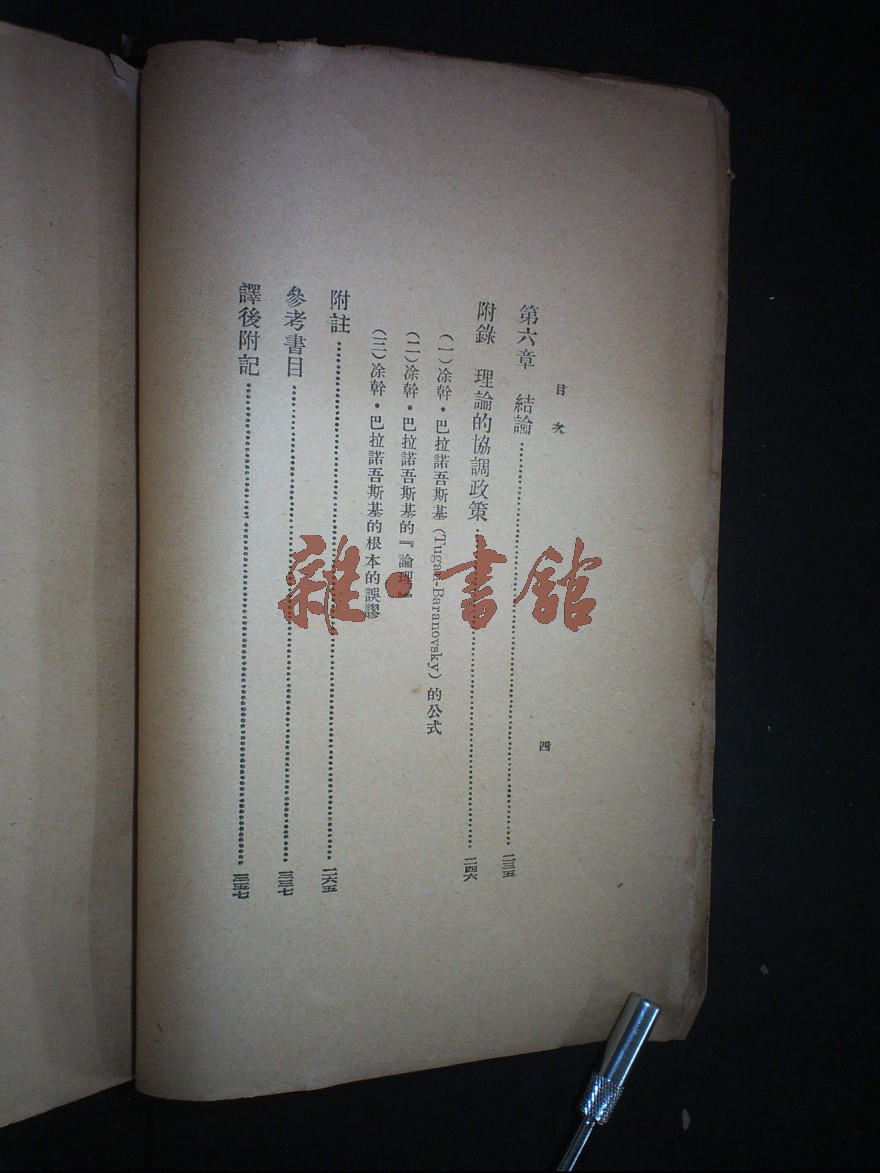 目次
四
第六章 結論……二三五
附錄 理論的協調政策……二四六
(一)凃幹・巴拉諾吾斯基(Tugan-Baranovsky)的公式
(二)凃幹・巴拉諾吾斯基的『論理』
(三)凃幹・巴拉諾吾斯基的根本的誤謬
附註……二六五
參考書目……三三七
譯後附記……三五七
雜・書館